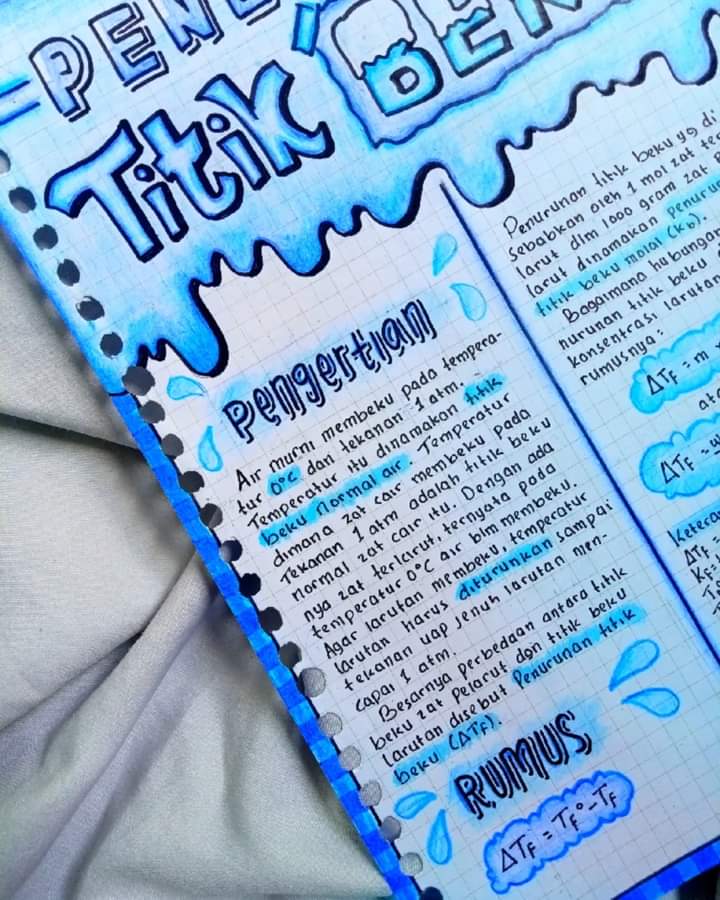 Titik
Pengertian
Air murni membeku pada tempera-
tur 0°C dan tekanan 1 atm.
Temperatur itu dinamakan titik
beku normal air. Temperatur
dimana zat cair membeku pada
Tekanan 1 atm adalah titik beku
normal zat cair itu. Dengan ada
nya zat terlarut, ternyata pada
temperatur 0°C air blm membeku.
Agar larutan membeku, temperatur
larutan harus diturunkan sampai
tekanan uap jenuh larutan men-
capai 1 atm.
Besarnya perbedaan antara titik
beku zat pelarut dgn titik beku
larutan disebut Penurunan titik
beku (ΔTF).
RUMUS
ΔTF = TF° - TF
Penurunan titik beku yg di
sebabkan oleh 1 mol zat
larut dlm 1000 gram zat
larut dinamakan
titik beku molal (Kb).
Bagaimana
titik beku
konsentrasi
rumusnya:
ΔTF = m
ΔTF =
ΔTF =
KF =